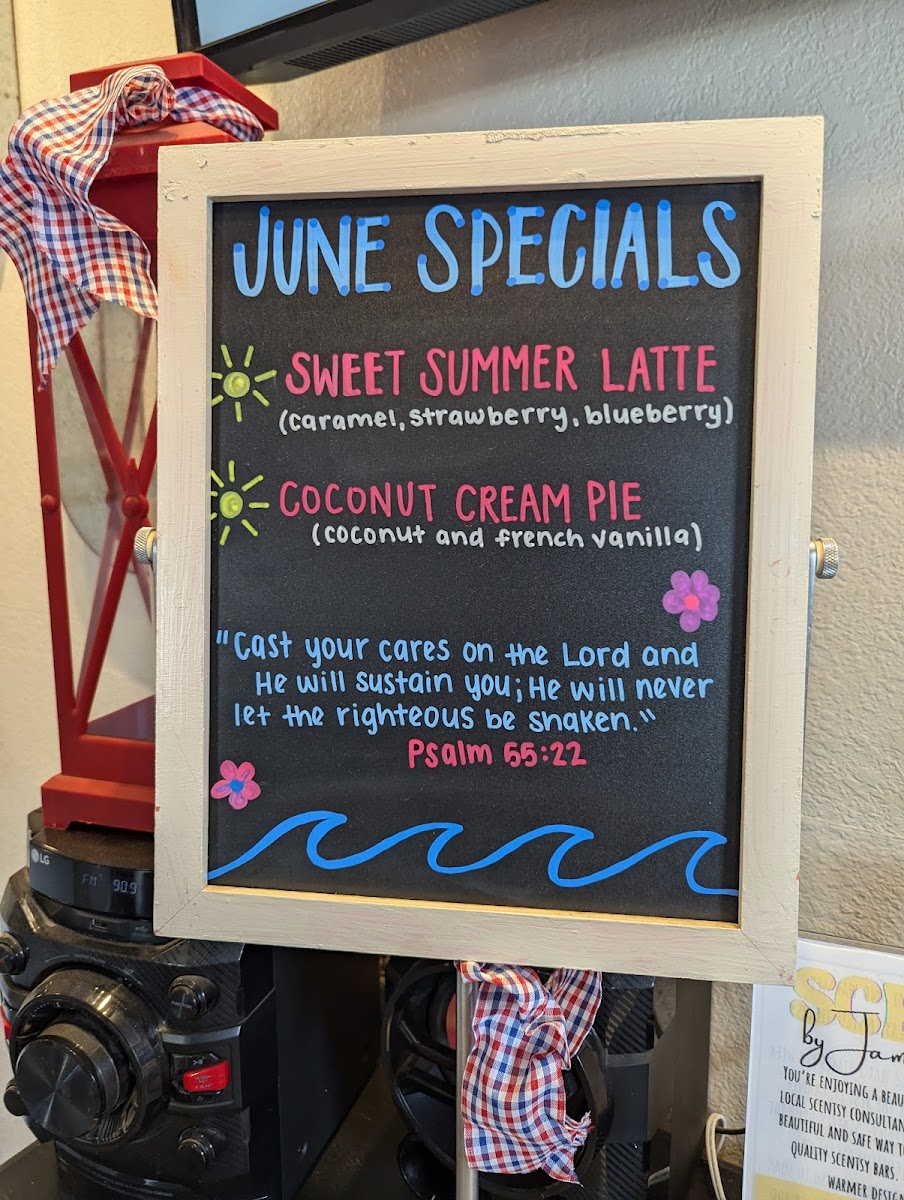 JUNE SPECIALS
SWEET SUMMER LATTE
(caramel, strawberry, blueberry)
COCONUT CREAM PIE
(coconut and french vanilla)
"Cast your cares on the Lord and
He will sustain you; He will never
let the righteous be shaken."
Psalm 55:22
LG
FM 90.9
by Jam
YOU'RE ENJOYING A
LOCAL SCENTSY
BEAUTIFUL AND SAFE WAY
QUALITY SCENTSY BARS.
WARMER